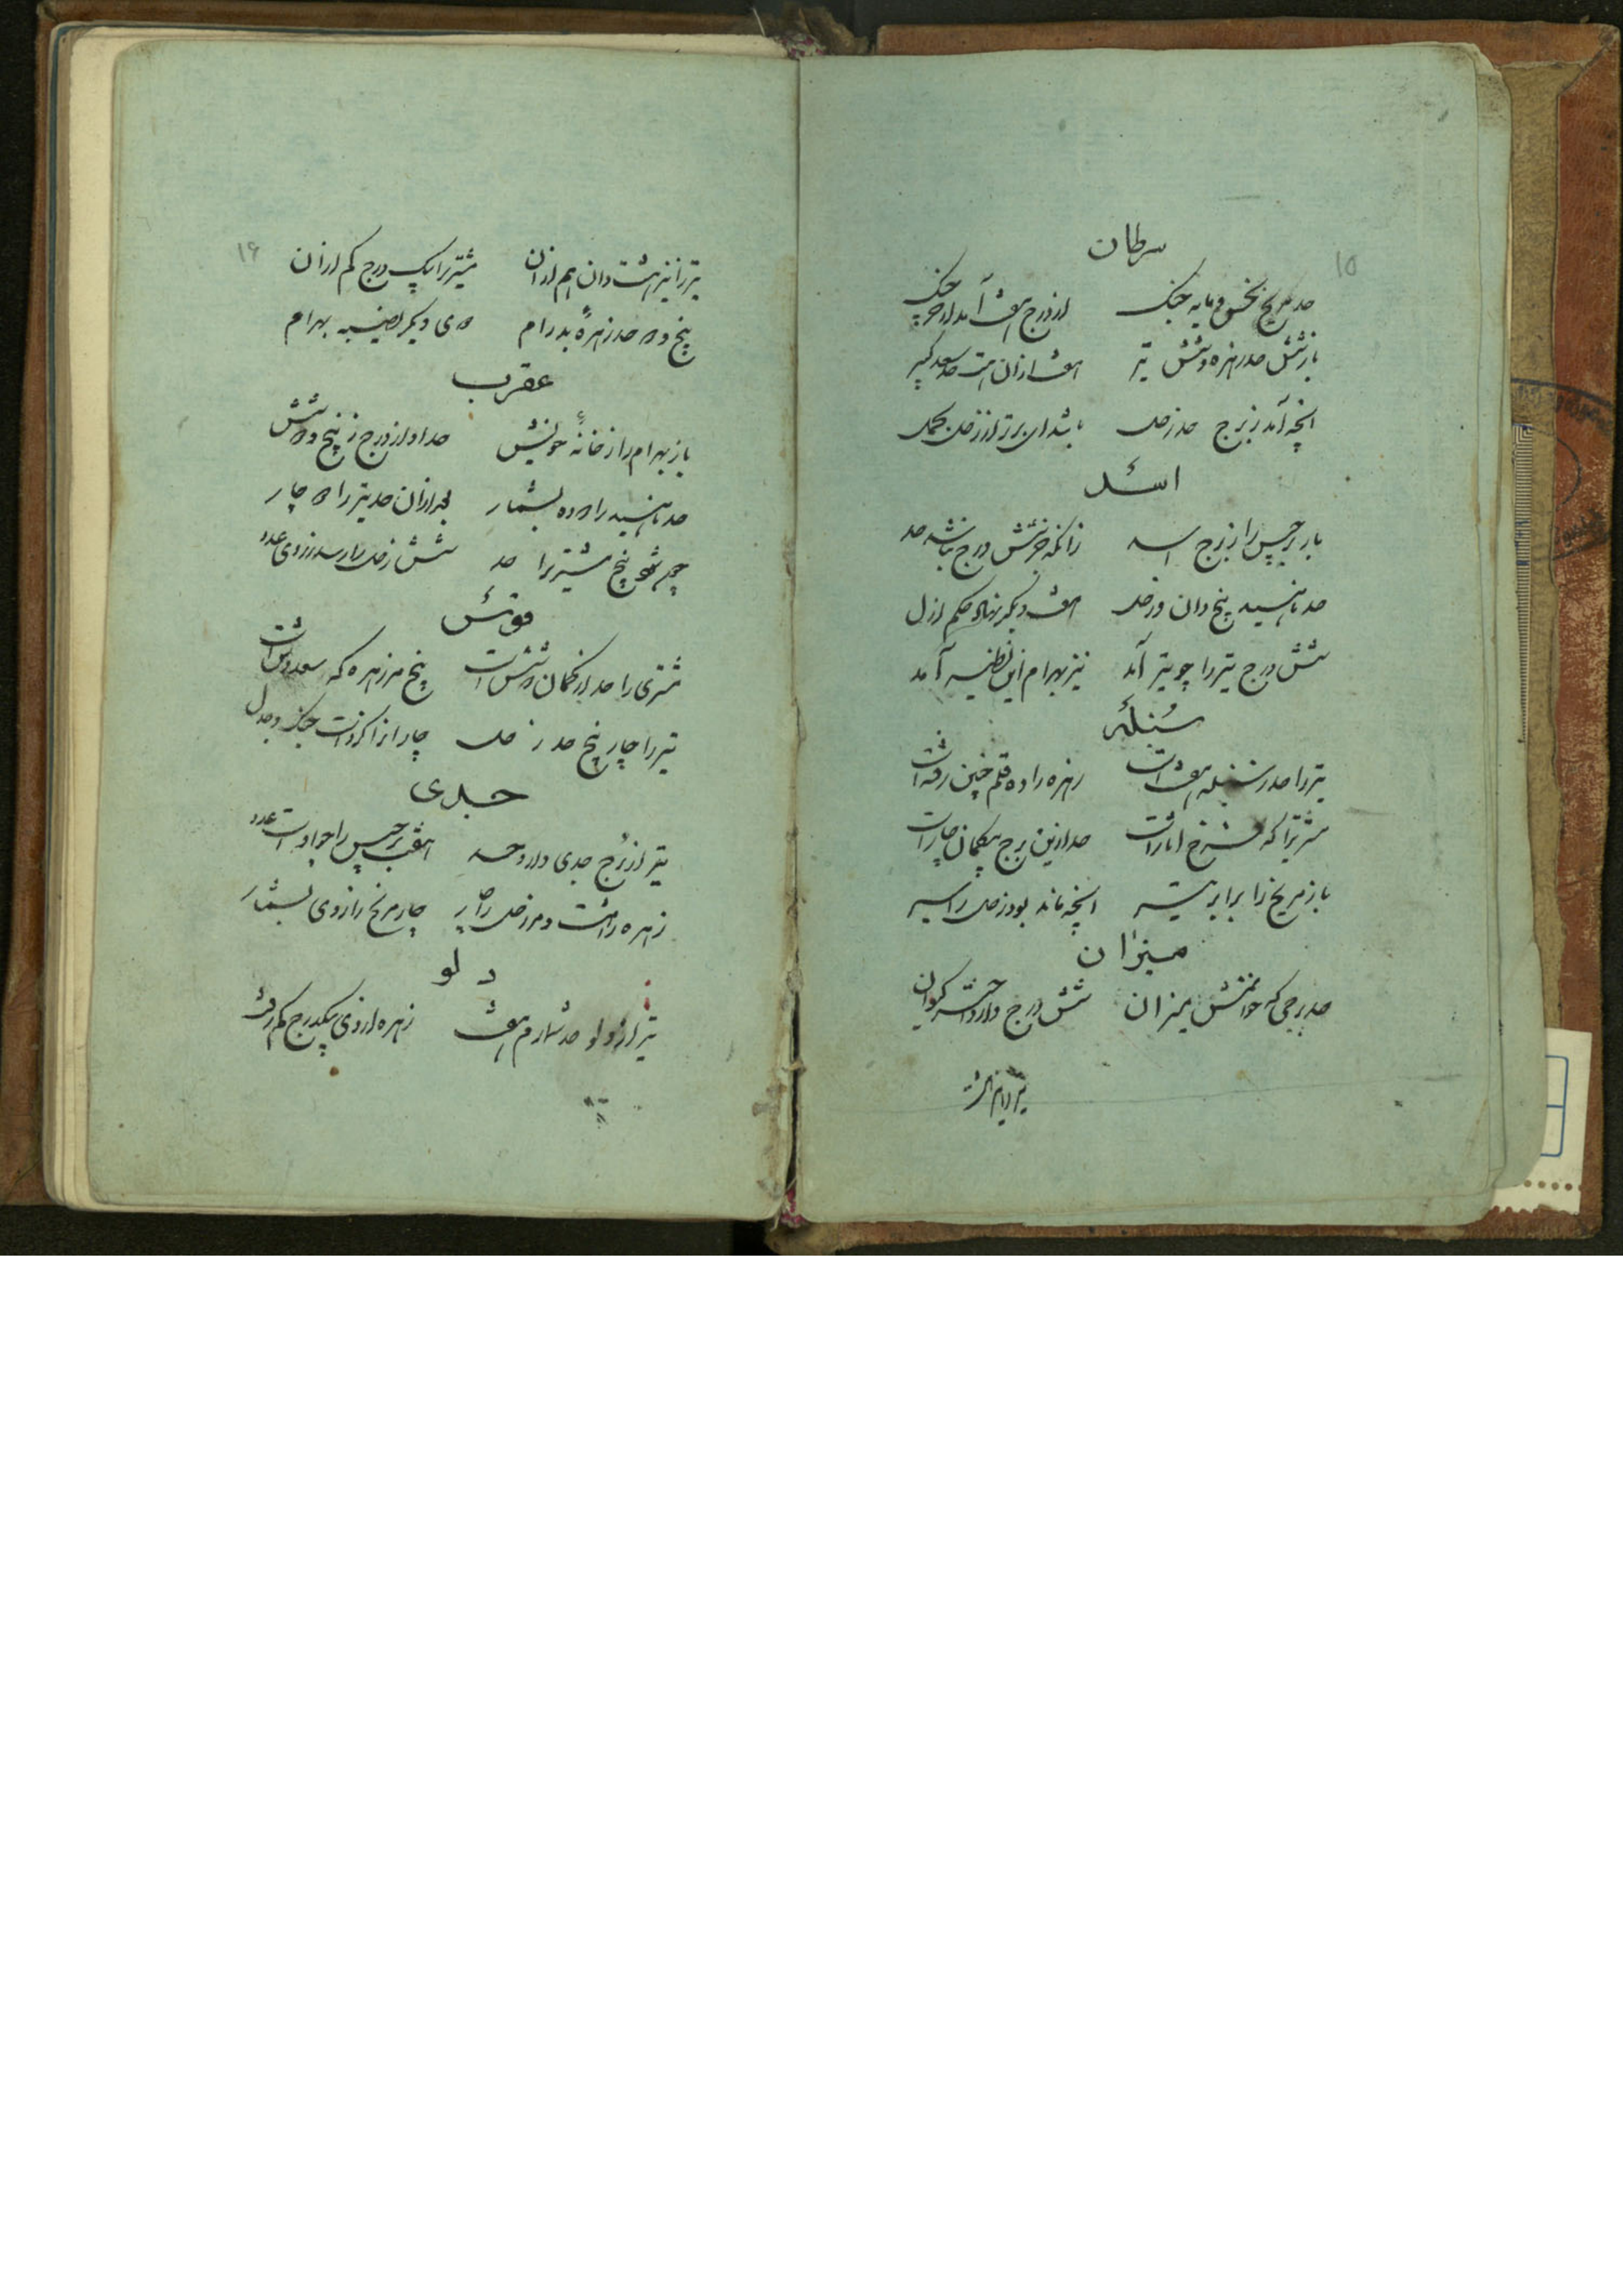 ۱۵
سرطان
حد مریخ نحس و مایه جنک از درج هفت آمد از خرچنک
باز شش حد زهره و شش تیر هفت از آن است حد سعد کبیر
انچه آمد ز برج حد زحل باشد آن برتر از زحل
اسد
باز برجیس را ز برج اسد زانکه جز شش درج نباشد حد
حد ناهید پنج دان و زحل هفت دیگر نهاد حکم ازل
شش درج تیر را چو تیر آمد نیز بهرام این نظیر آمد
سنبله
تیر را حد ز سنبله هفت است زهره را ده قلم چنین رفته است
مشتریرا که فرخ آثار است حد ازین برج بیکمان چار است
باز مریخ را برابر تیر انچه ماند بود زحل را سیر
میزان
حد برجی که خوانمش میزان شش درج دارد اختر کیوان
تیر را نیز هشت
۱۶
تیر را نیز هشت دان هم از آن مشتریرا یک درج کم از آن
پنج و ده حد زهره بدرام دوی دیکر نصیبه بهرام
عقرب
باز بهرام را ز خانه خویش حد او از درج ز پنج و دو بیش
حد ناهید را ده بشمار بعد از آن حد تیر را چار
پنج مشتریرا حد شش زحل را رسد ز روی عدد
قوس
مشتری را حد از کمان دو شش است پنج مر زهره که سعد وش است
تیر را چار پنج حد زحل چار از آن جنک و جدل
جدی
تیر از برج جدی دارد حد هفت برجیس را چو اوست عدد
زهره را هشت و مر زحل را چار چار مریخ را ز وی بشمار
دلو
تیر از دلو حد شمارم هفت زهره از وی یکدرج کم رفت